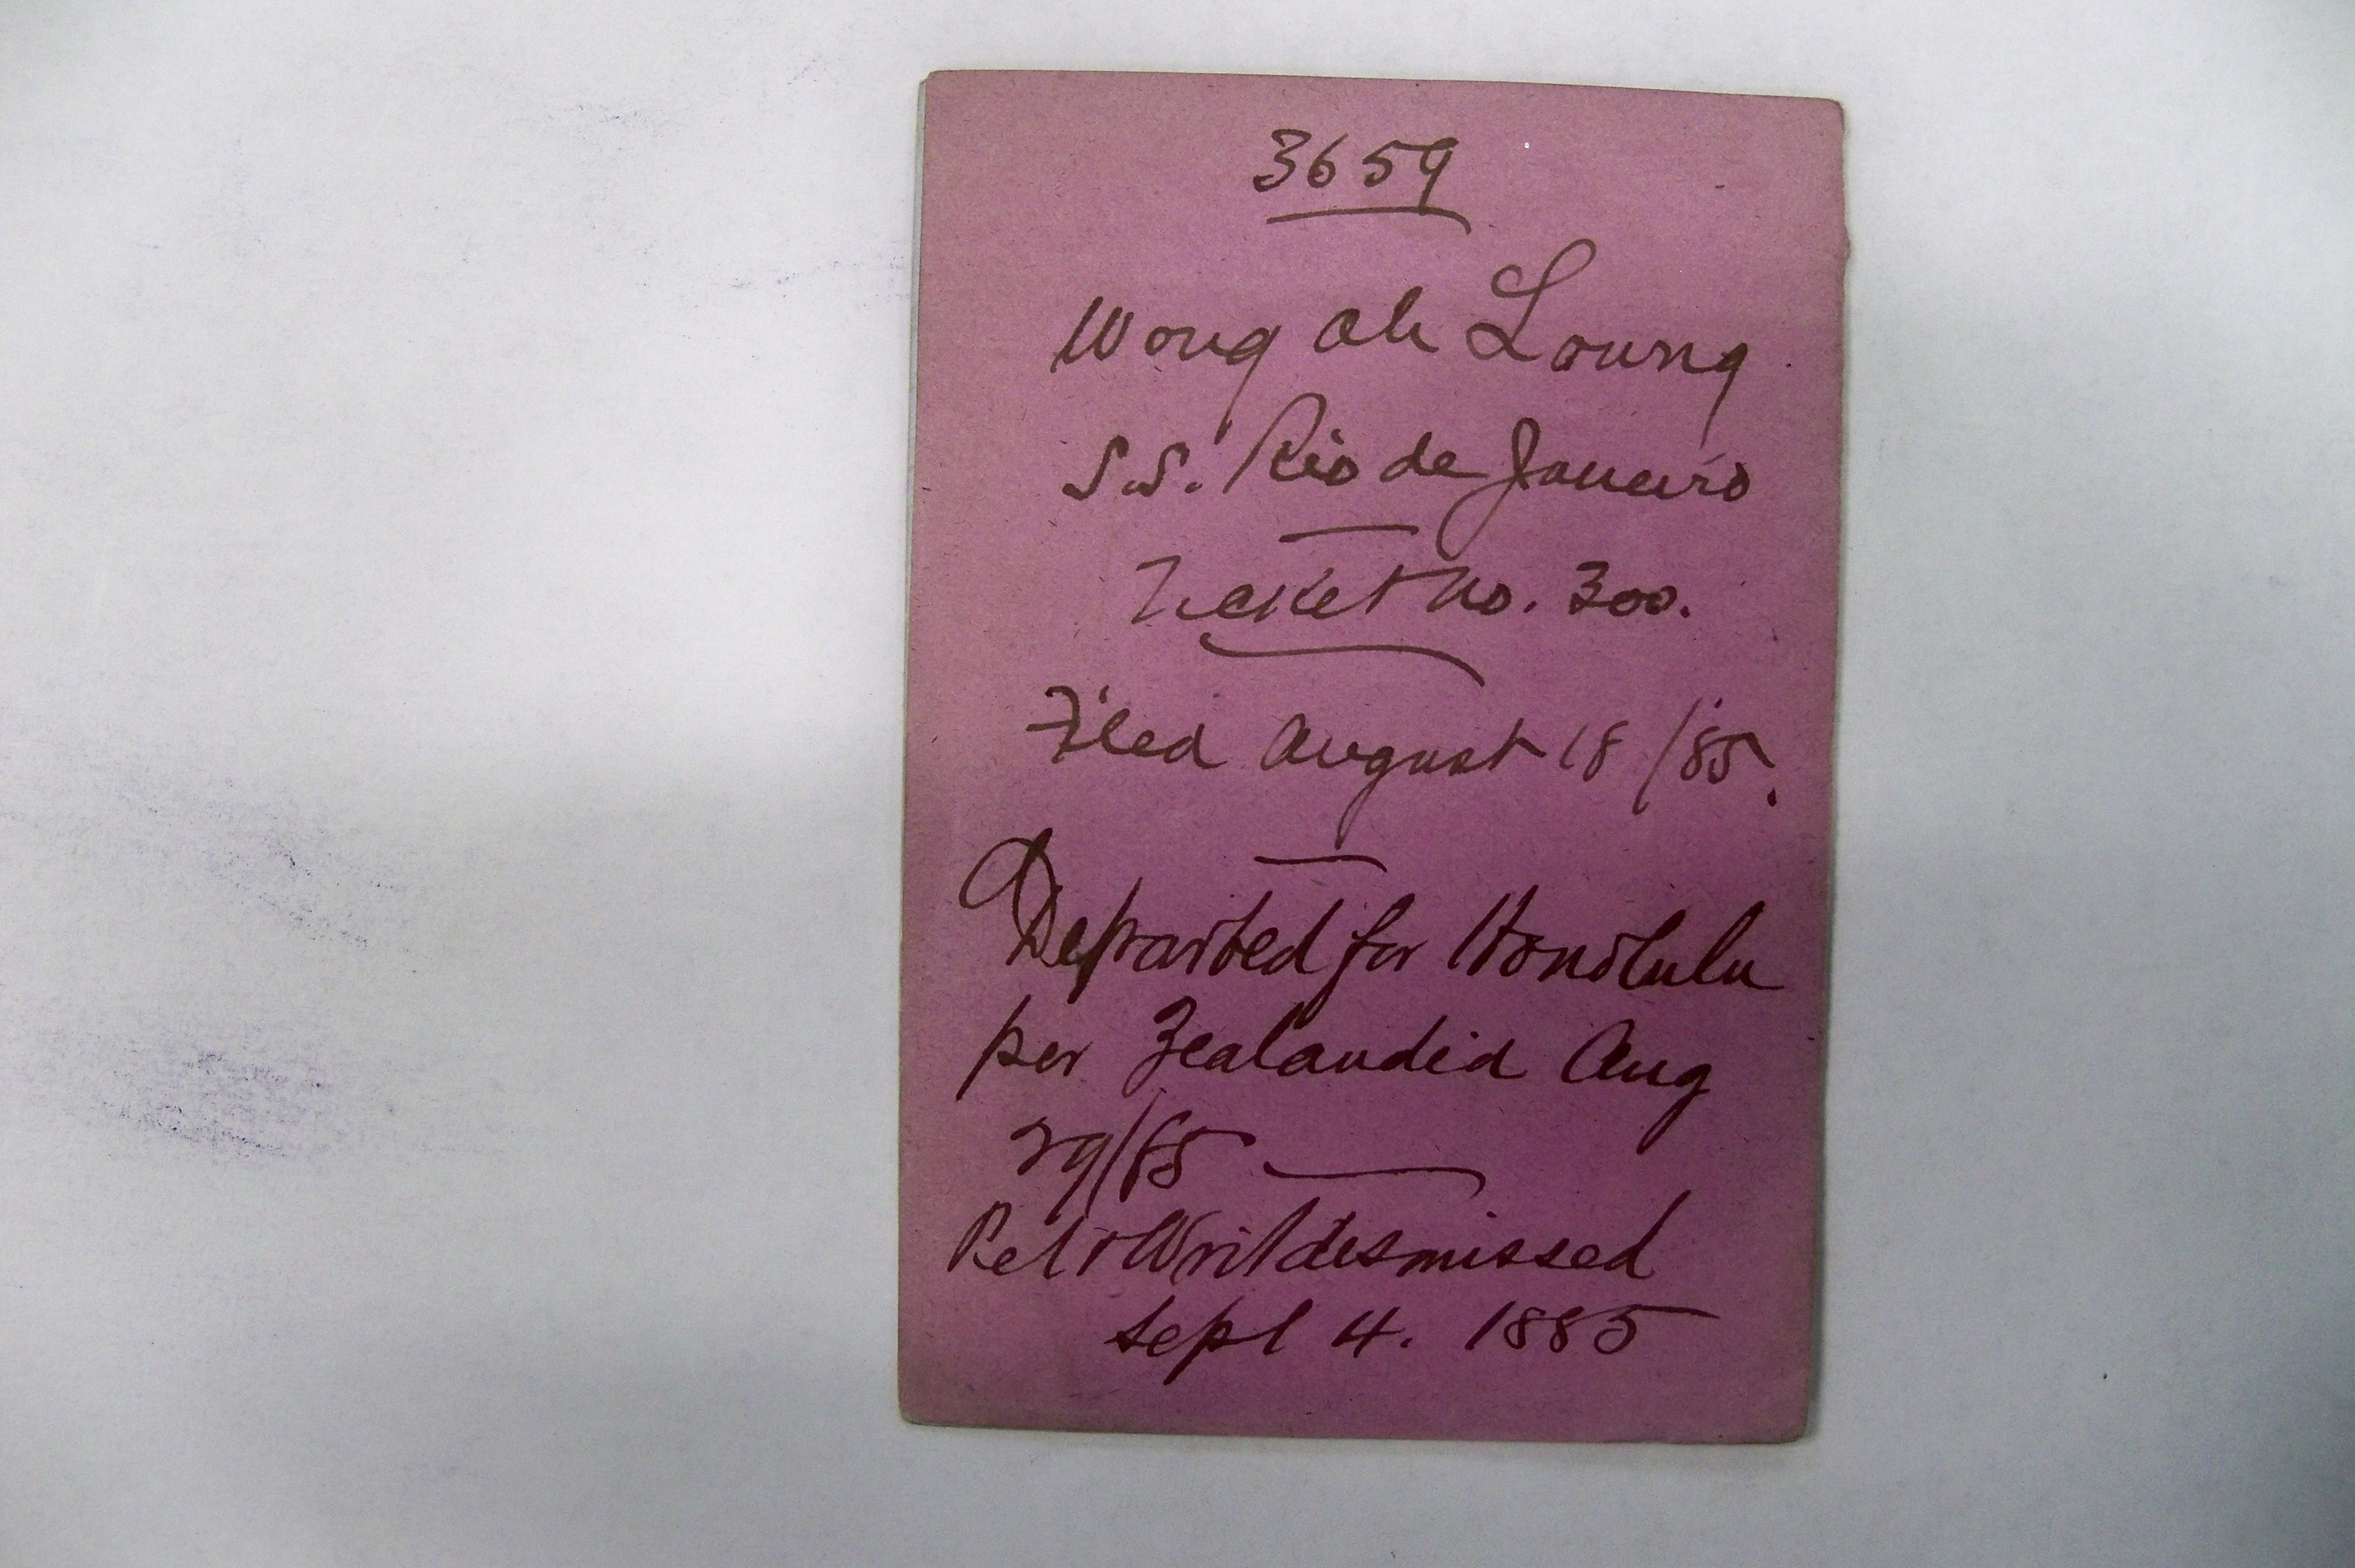 3659
Wong Ah Loung
S.S. Rio de Janeiro
Ticket No. 300.
Filed August 18/85.
Departed for Honolulu
per Zealandia Aug
29/85
Pet & Writ dismissed
Sept 4. 1885